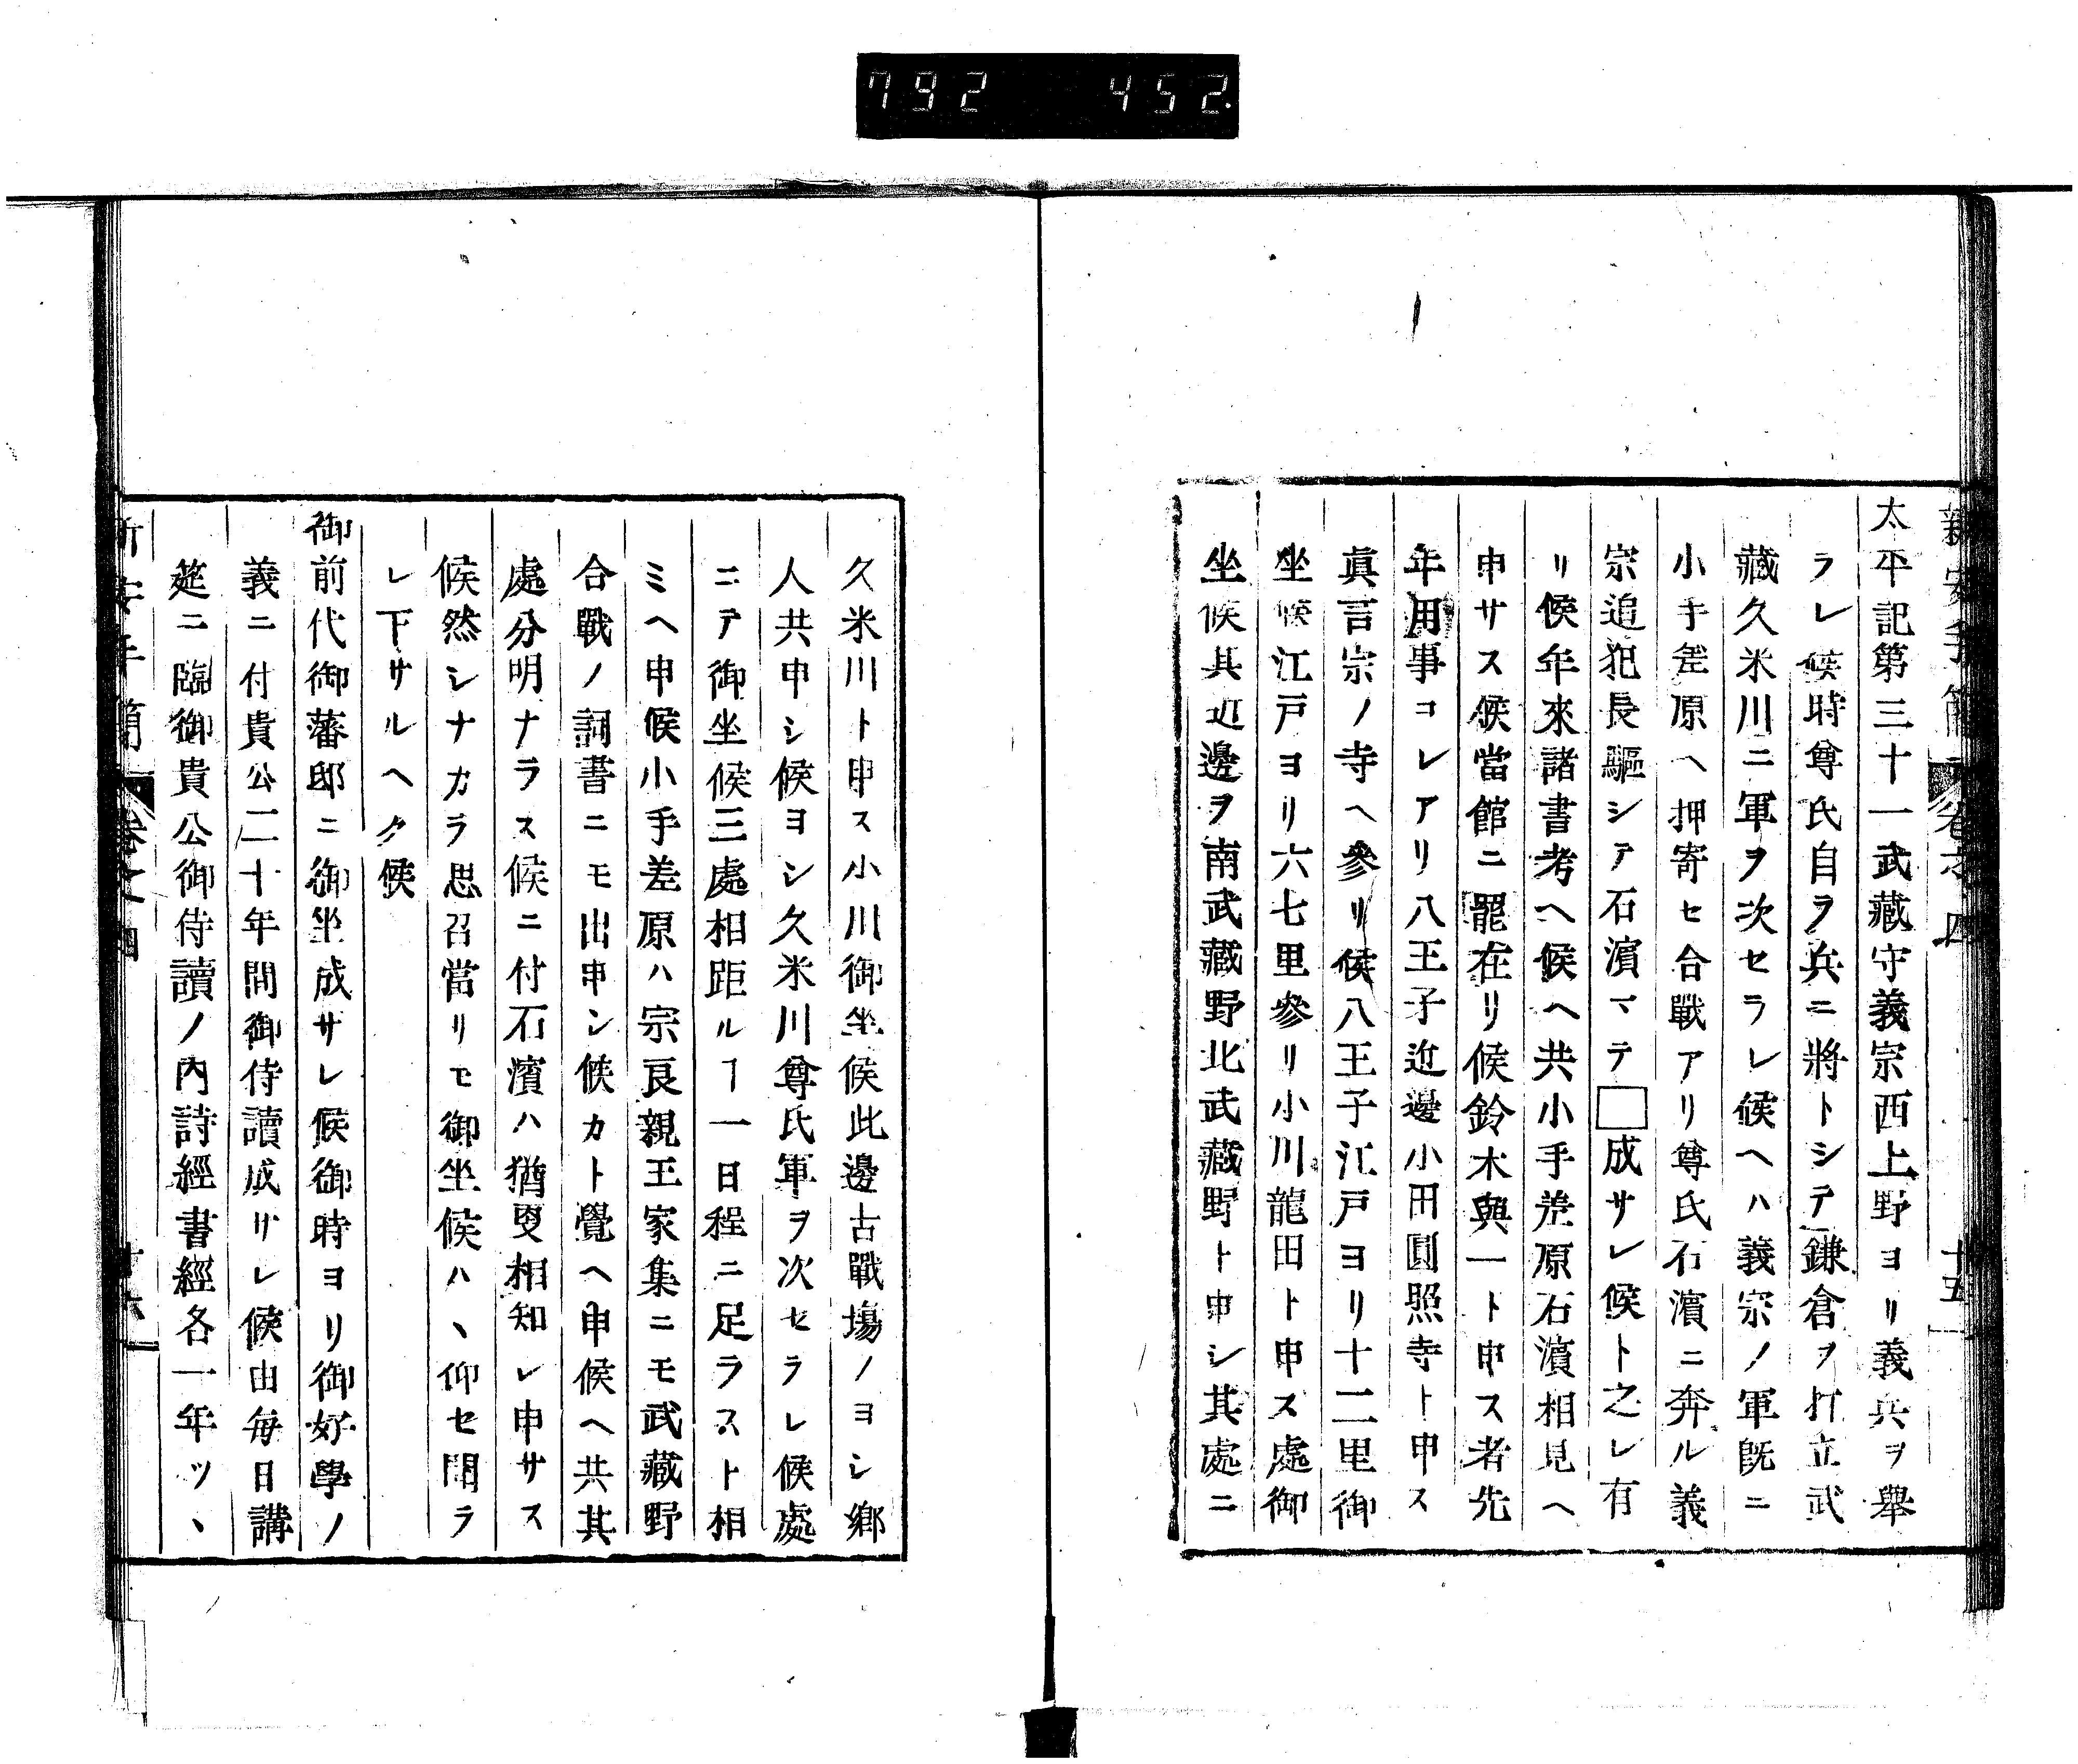 792 452
新安手簡 卷之四 十五
太平記第三十一武藏守義宗西上野ヨリ義兵ヲ舉
ラレ候時尊氏自ラ兵ニ將トシテ鎌倉ヲ打立武
藏久米川ニ軍ヲ次セラレ候ヘハ義宗ノ軍既ニ
小手差原ヘ押寄セ合戰アリ尊氏石濱ニ奔ル義
宗追犯長驅シテ石濱マテ□成サレ候ト之レ有
リ候年來諸書考ヘ候ヘ共小手差原石濱相見ヘ
申サス候當館ニ罷在リ候鈴木與一ト申ス者先
年用事コレアリ八王子近邊小田圓照寺ト申ス
眞言宗ノ寺ヘ參リ候八王子江戸ヨリ十二里御
坐候江戸ヨリ六七里參リ小川龍田ト申ス處御
坐候其辺邊ヲ南武藏野北武藏野ト申シ其處ニ
久米川ト申ス小川御坐候此邊古戰場ノヨシ鄉
人共申シ候ヨシ久米川尊氏軍ヲ次セラレ候處
ニテ御坐候三處相距ルヿ一日程ニ足ラスト相
ミヘ申候小手差原ハ宗良親王家集ニモ武藏野
合戰ノ詞書ニモ出申シ候カト覺ヘ申候ヘ共其
處分明ナラス候ニ付石濱ハ猶更相知レ申サス
候然シナカラ思召當リモ御坐候ハヽ仰セ聞ラ
レ下サルヘク候
御前代御藩邸ニ御坐成サレ候御時ヨリ御好學ノ
義ニ付貴公二十年間御侍讀成サレ候由每日講
筵ニ臨御貴公御侍讀ノ内詩經書經各一年ツヽ
新安手簡 卷之四